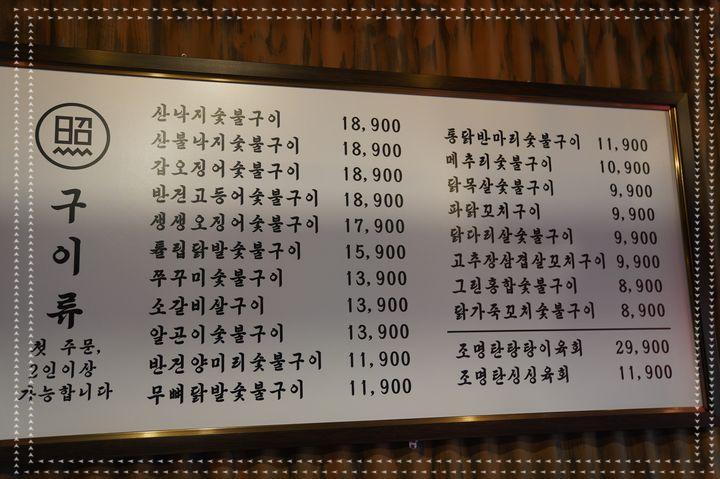 昭
구이류
첫 주문,
2인이상
가능합니다
산낙지숯불구이 18,900
산불낙지숯불구이 18,900
갑오징어숯불구이 18,900
반건고등어숯불구이 18,900
생생오징어숯불구이 17,900
튤립닭발숯불구이 15,900
쭈꾸미숯불구이 13,900
소갈비살구이 13,900
알곤이숯불구이 13,900
반건양미리숯불구이 11,900
무뼈닭발숯불구이 11,900
통닭반마리숯불구이 11,900
메추리숯불구이 10,900
닭목살숯불구이 9,900
파닭꼬치구이 9,900
닭다리살숯불구이 9,900
고추장삼겹살꼬치구이 9,900
그린홍합숯불구이 8,900
닭가죽꼬치숯불구이 8,900
조명탄탕탕이육회 29,900
조명탄싱싱육회 11,900